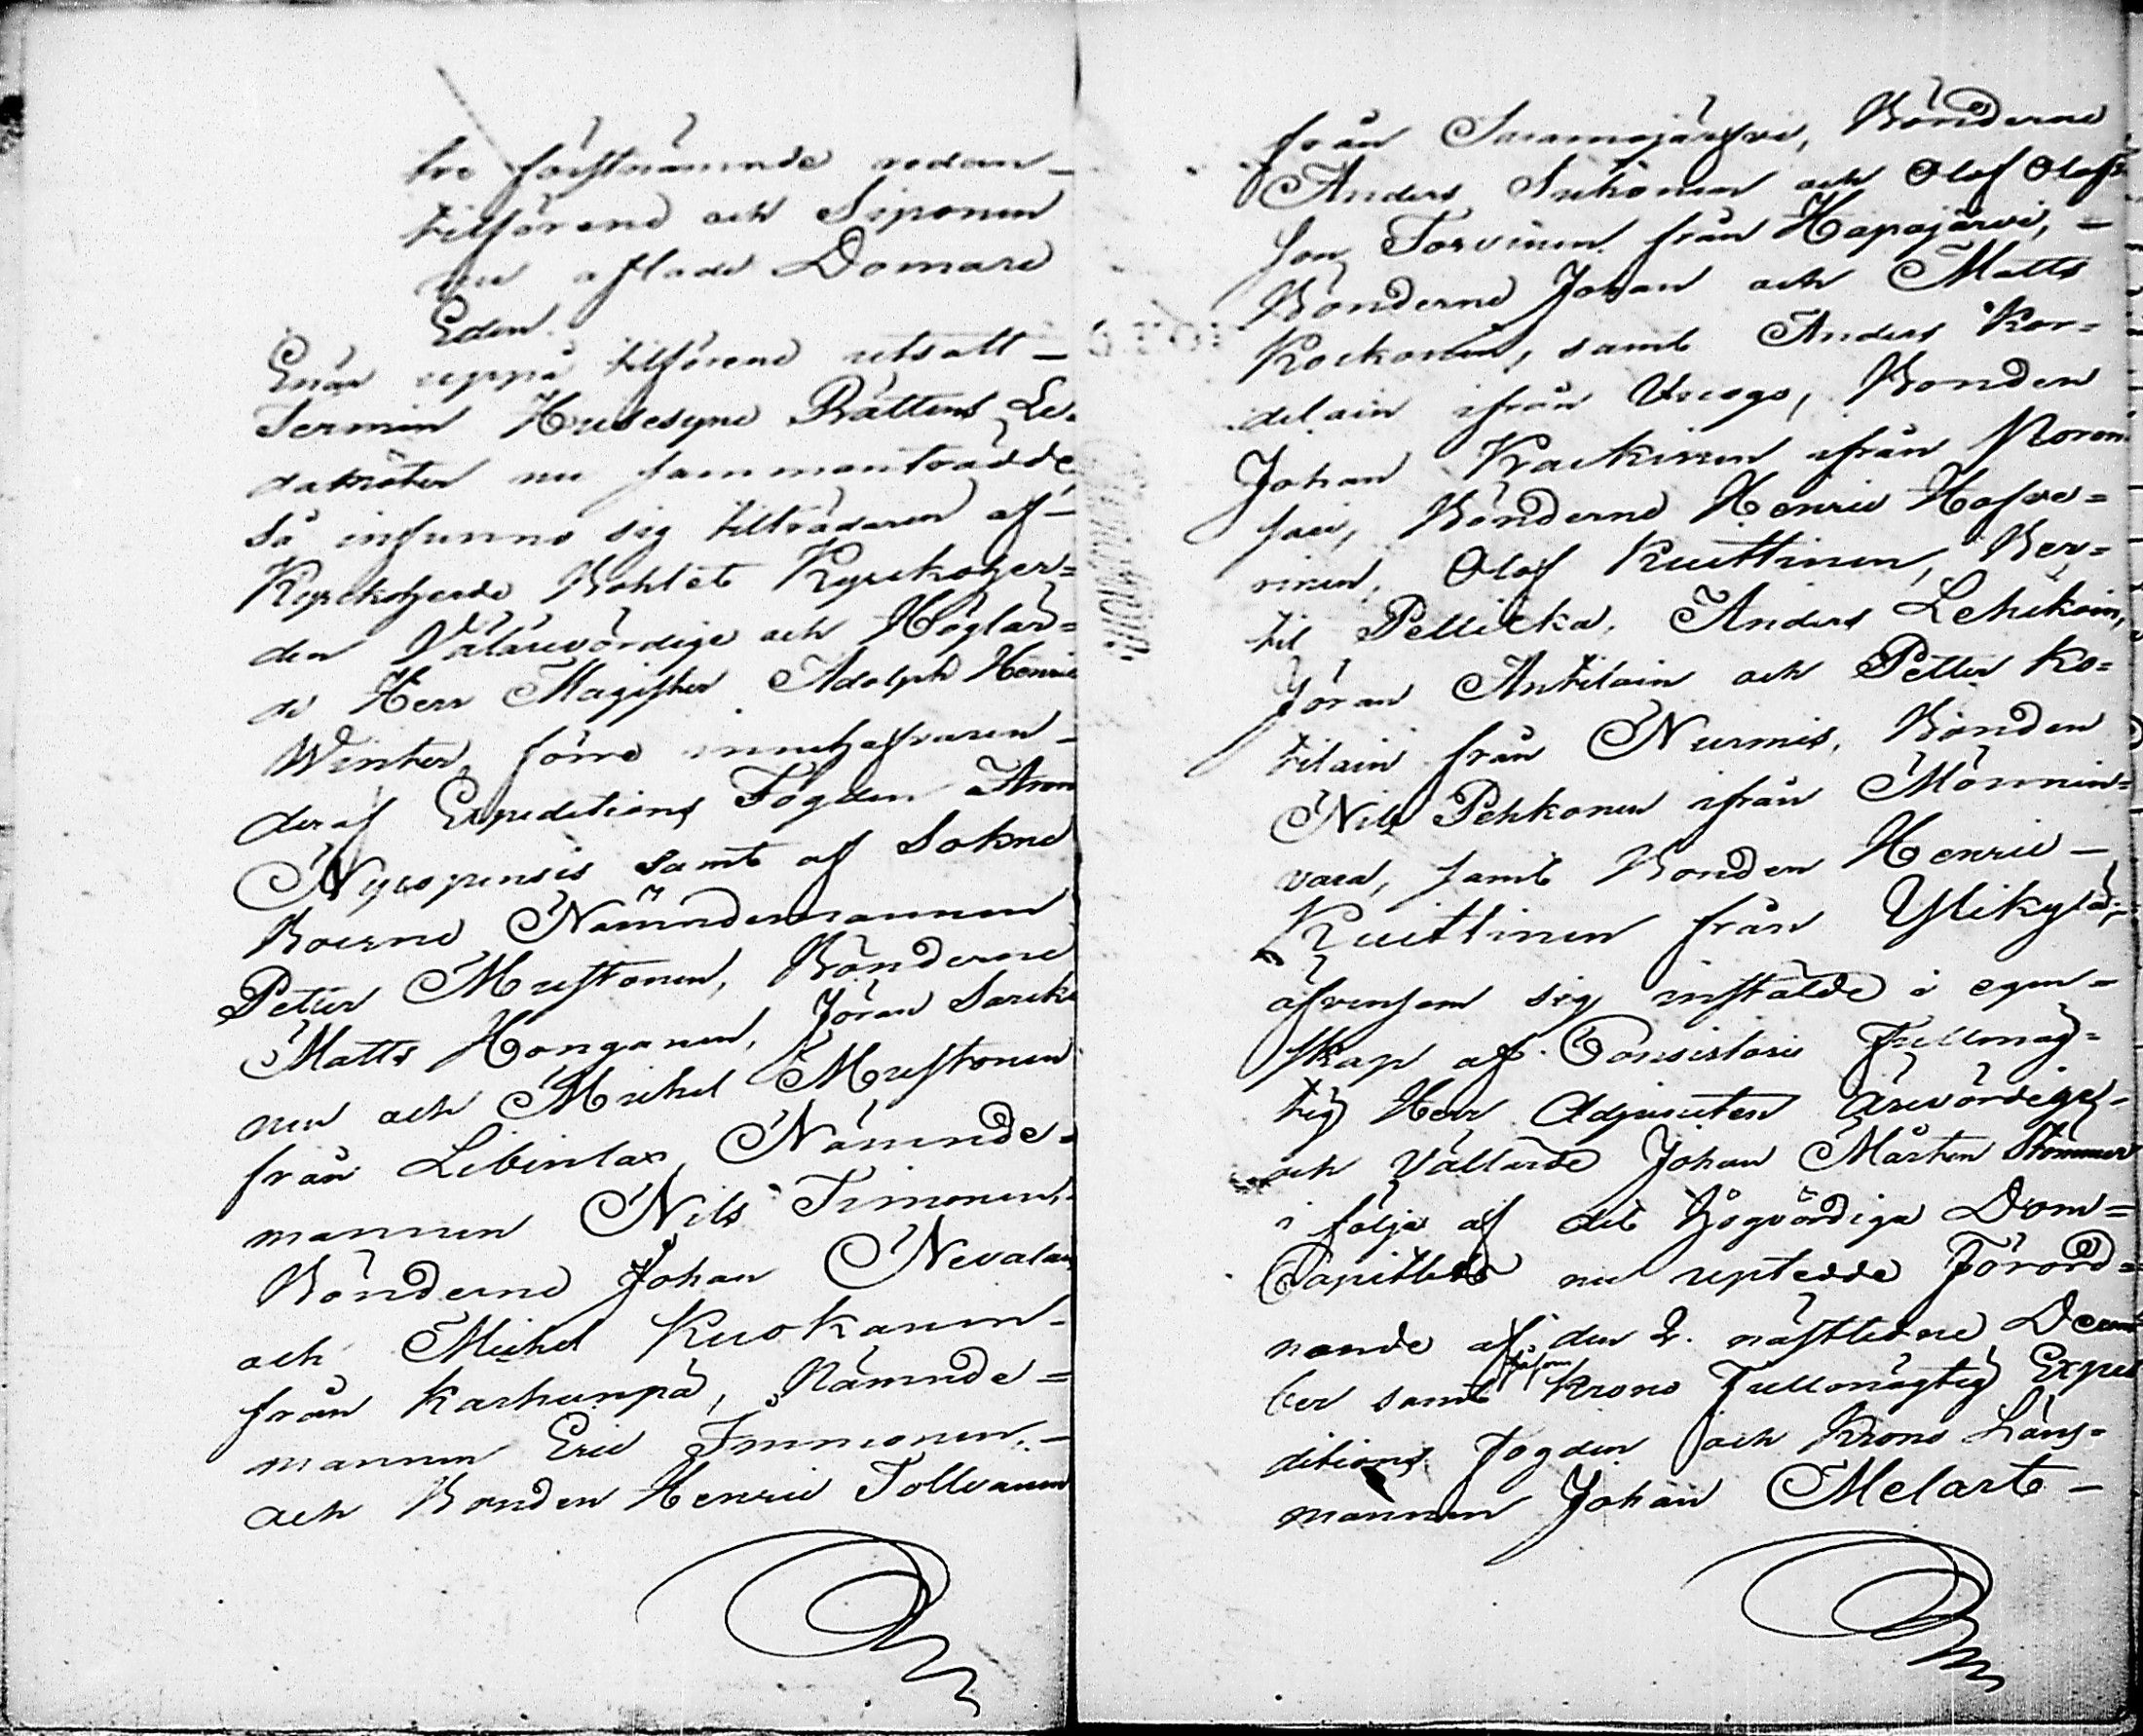 tre förstnämnde redan
tilförene och Siponen
nu aflade Domare
Eden.
Enär uppå tilförene utsatt
Termin Husesyne Rättens Le-
damöter nu sammanträdde,
så infunno sig tillträdaren af
Kyrckoherde Bohlet Kyrckoher=
den Välärevördige och Höglär=
de Herr Magister Adolph Henric
Winter, förre innehafvaren
deraf Expeditions Fogden Aron
Nycopensis samt af Sokne
Boerne Nämndemannen
Petter Mustonen, Bönderne
Matts Honganen, Jöran Sarcki
nen och Michel Mustonen
från Libinlax, Nämnde=
mannen Nils Timonen,
Bönderne Johan Nevalain
och Michel Kuokanen
från Karhunpä, Nämnde=
mannen Eric Immonen,
och Bonden Henric Tollvanen
från Saramojärfvi, Bönderne
Anders Suhonen och Olof Olofs
son Torvinen från Hapajärvi,
Bönderne Johan och Matts
Kockonen, samt Anders Kor=
delain ifrån Vieågo, Bonden
Johan Krackinen ifrån Noron
sari, Bönderne Henric Hafve=
rinen, Olof Kuittinen, Ber=
til Pellicka, Anders Lehikoin,
Jöran Antilain och Petter Ko=
tilain från Nurmis, Bonden
Nils Pehkonen ifrån Mönnin=
vara, samt Bonden Henric
Kuittinen från Ylikylä;
äfvensom sig instälde i egen=
skap af Consistorii Fullmäg=
tig Herr Adjuncten Ärevördige
och Vällärde Johan Mårten Stommer
i följe af det Högvördiga Dom=
Capitlets nu uptedde Förord=
nande af den 2. nästledne Decem
ber samt såsom Krono Fullmägtig Expe
ditions Fogden och Krono Läns=
mannen Johan Melart